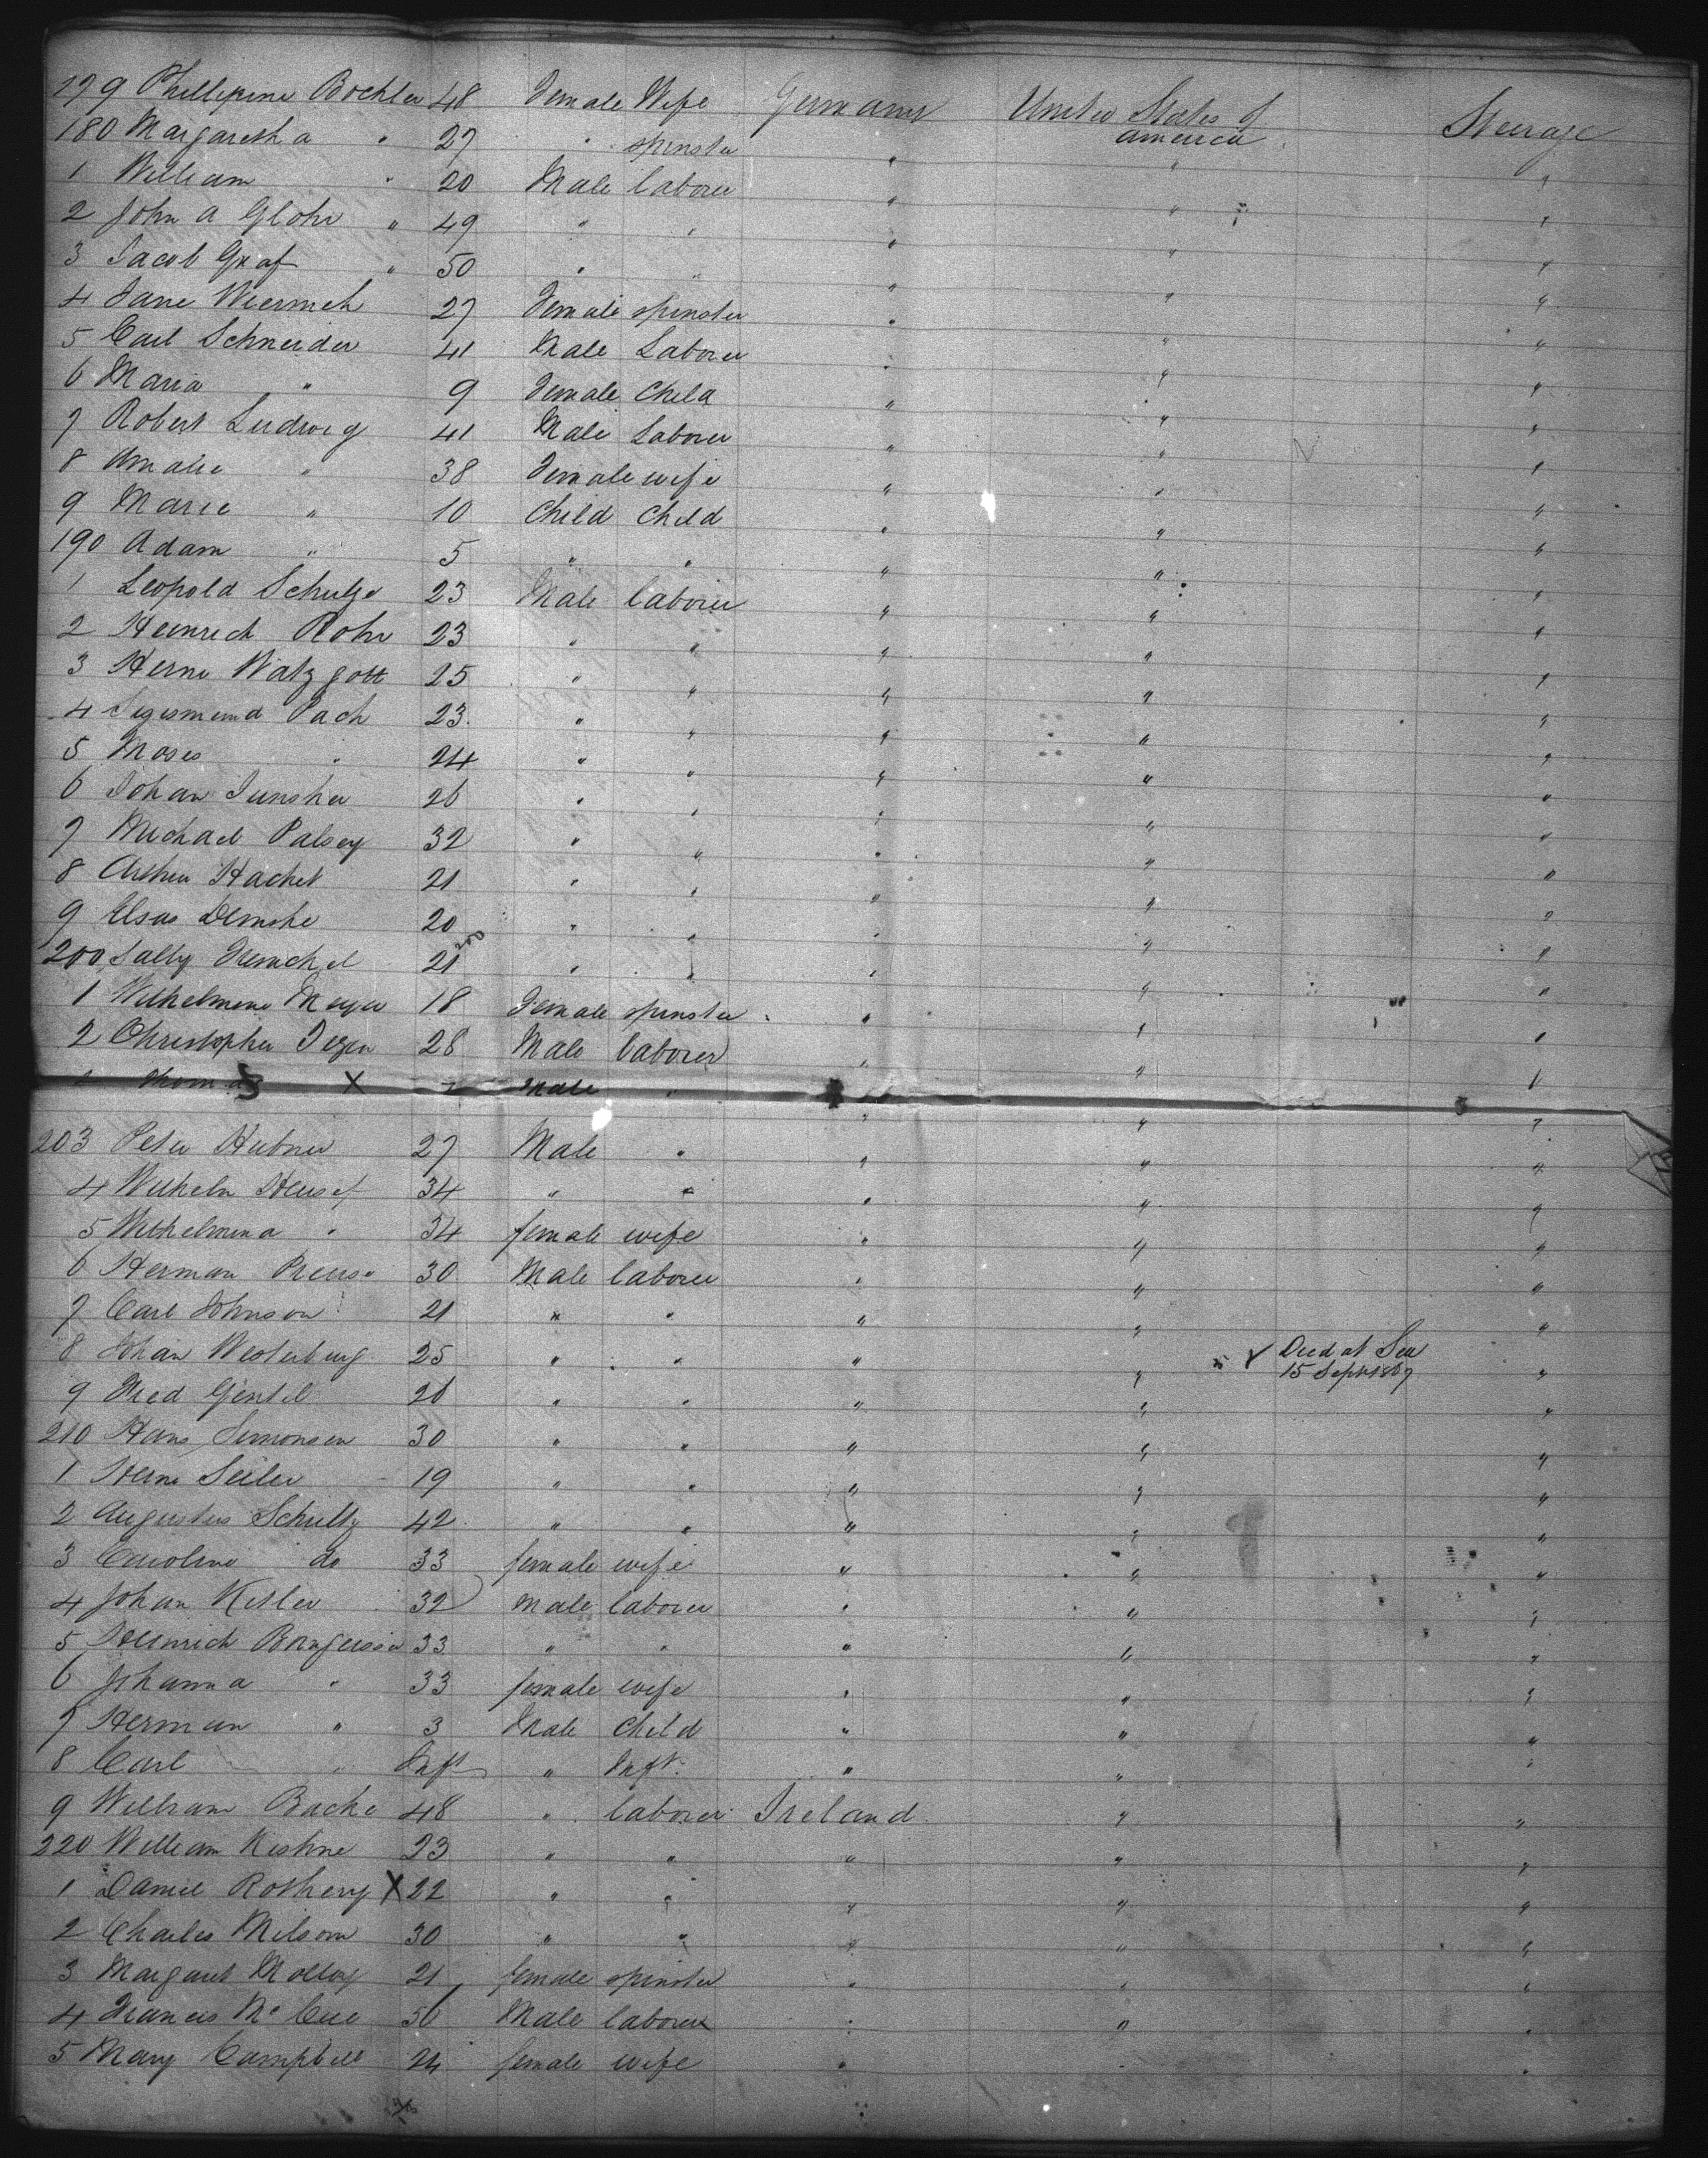 179 Phillipine Bochler 48 Female Wife Germany United States of America Steerage
180 Margaretha " 27 " spinster " " "
1 William " 20 Male laborer " " "
2 John A Glohr " 49 " " " " "
3 Jacob Graf " 50 " " " " "
4 Jane 27 Female spinster " " "
5 Carl Schneider 41 Male Laborer " " "
6 Maria " 9 Female Child " " "
7 Robert Ludwig 41 Male Laborer " " "
8 Amalie " 38 Female wife " " "
9 Marie " 10 Child Child " " "
190 Adam " 5 " " " " "
1 Leopold Schulze 23 Male laborer " " "
2 Heinrich Rohr 23 " " " " "
3 Herne Watzgott 25 " " " " "
4 Sigismund Pach 23 " " " " "
5 Moses " 24 " " " " "
6 Johan 26 " " " " "
7 Michael Palsey 32 " " " " "
8 Arthur Hachet 21 " " " " "
9 Elsas Demske 20 " " " " "
200 Sally 21 " " " " "
1 Wilhelmene Meyer 18 Female spinster " " "
2 Christopher 28 Male laborer " " "
Thomas X Male " " " "
203 Peter Hubner 27 Male " " " "
4 Wilhelm 34 " " " " "
5 Wilhelmina " 34 female wife " " "
6 Herman Preuss 30 Male laborer " " "
7 Carl Johnson 21 " " " " "
8 Johan Westerburg 25 " " " " Died at Sea 15 Sept 1867 "
9 Fred Gentel 26 " " " " "
210 Hans Simonsen 30 " " " " "
1 Herne Seiler 19 " " " " "
2 Augustus Schultz 42 " " " " "
3 Caroline do 33 female wife " " "
4 Johan Kisler 32 male laborer " " "
5 Heinrich 33 " " " " "
6 Johanna " 33 female wife " " "
7 Herman " 3 Male Child " " "
8 Carl " Inft " Inft. " " "
9 William Backe 48 " laborer Ireland " "
220 William Kishne 23 " " " " "
1 Daniel Rothery X 22 " " " " "
2 Charles Milsom 30 " " " " "
3 Margaret Molloy 21 female spinster " " "
4 Francis McCue 50 Male laborer " " "
5 Mary Campbell 24 female wife " " "